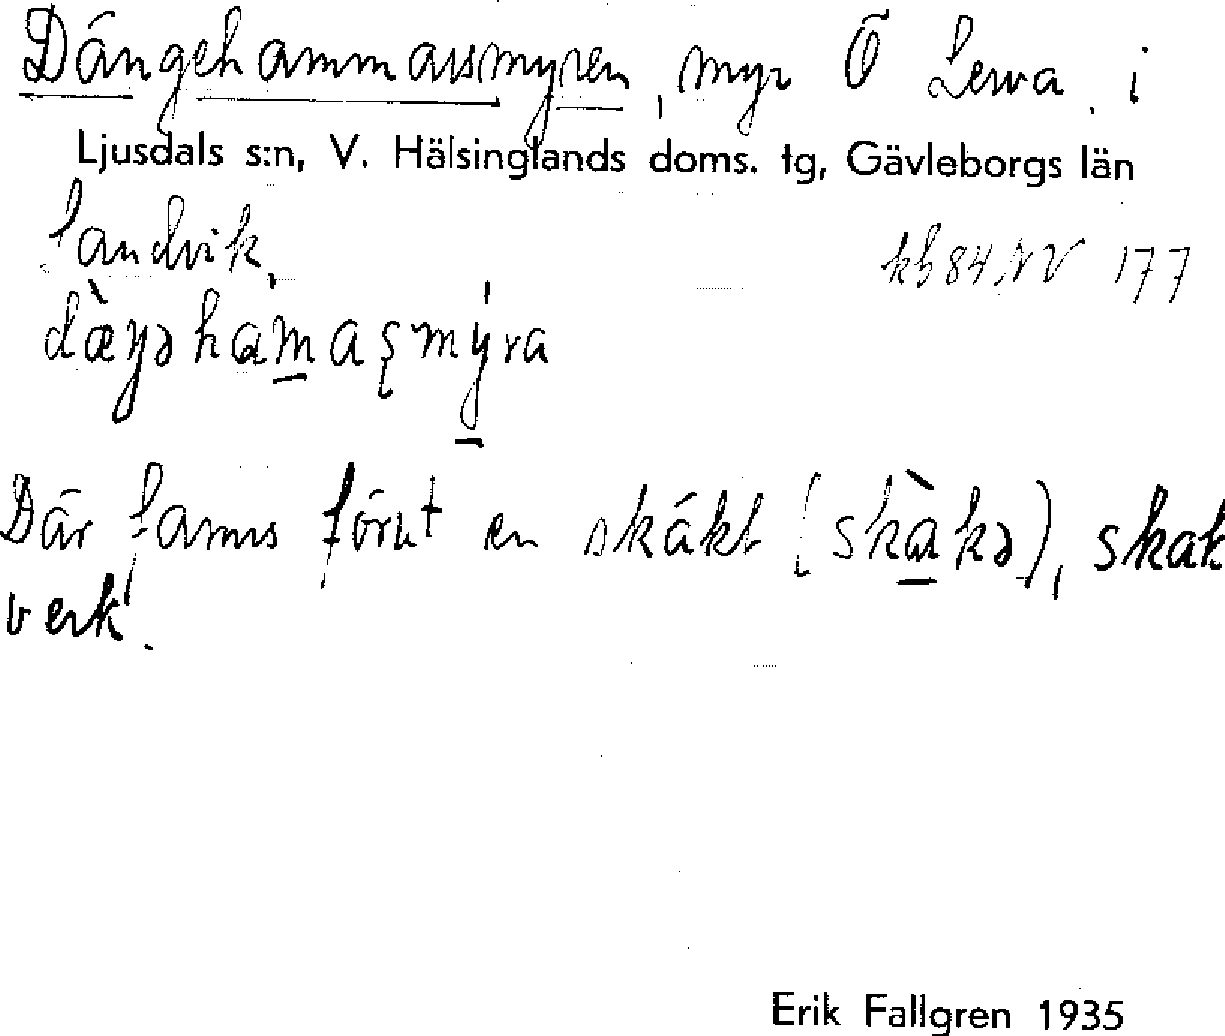 Dängehammarsmyren, myr Ö Lerva i
Ljusdals s:n, V. Hälsinglands doms. tg, Gävleborgs län
Sandvik, kb 84 NV 177
dæ̀ŋəhamaʂmýra
Där fanns förut en skäkt (skàkə), skak
verk.
Erik Fallgren 1935